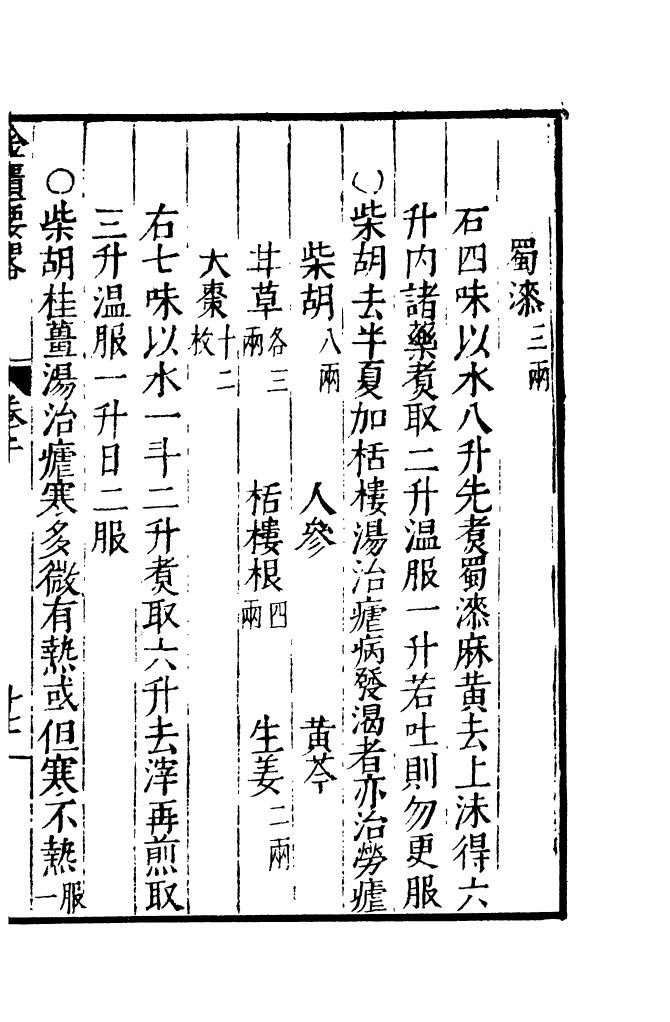 蜀漆三兩
右四味以水八升先煑蜀漆麻黃去上沫得六
升内諸藥煑取二升温服一升若吐則勿更服
〇柴胡去半夏加栝樓湯治瘧病發渴者亦治勞瘧
柴胡八兩 人參 黃芩
甘草各三兩 栝樓根四兩 生姜二兩
大棗十二枚
右七味以水一斗二升煑取六升去滓再煎取
三升温服一升日二服
〇柴胡桂薑湯治瘧寒多微有熱或但寒不熱服一
金匱要略 卷上 十七